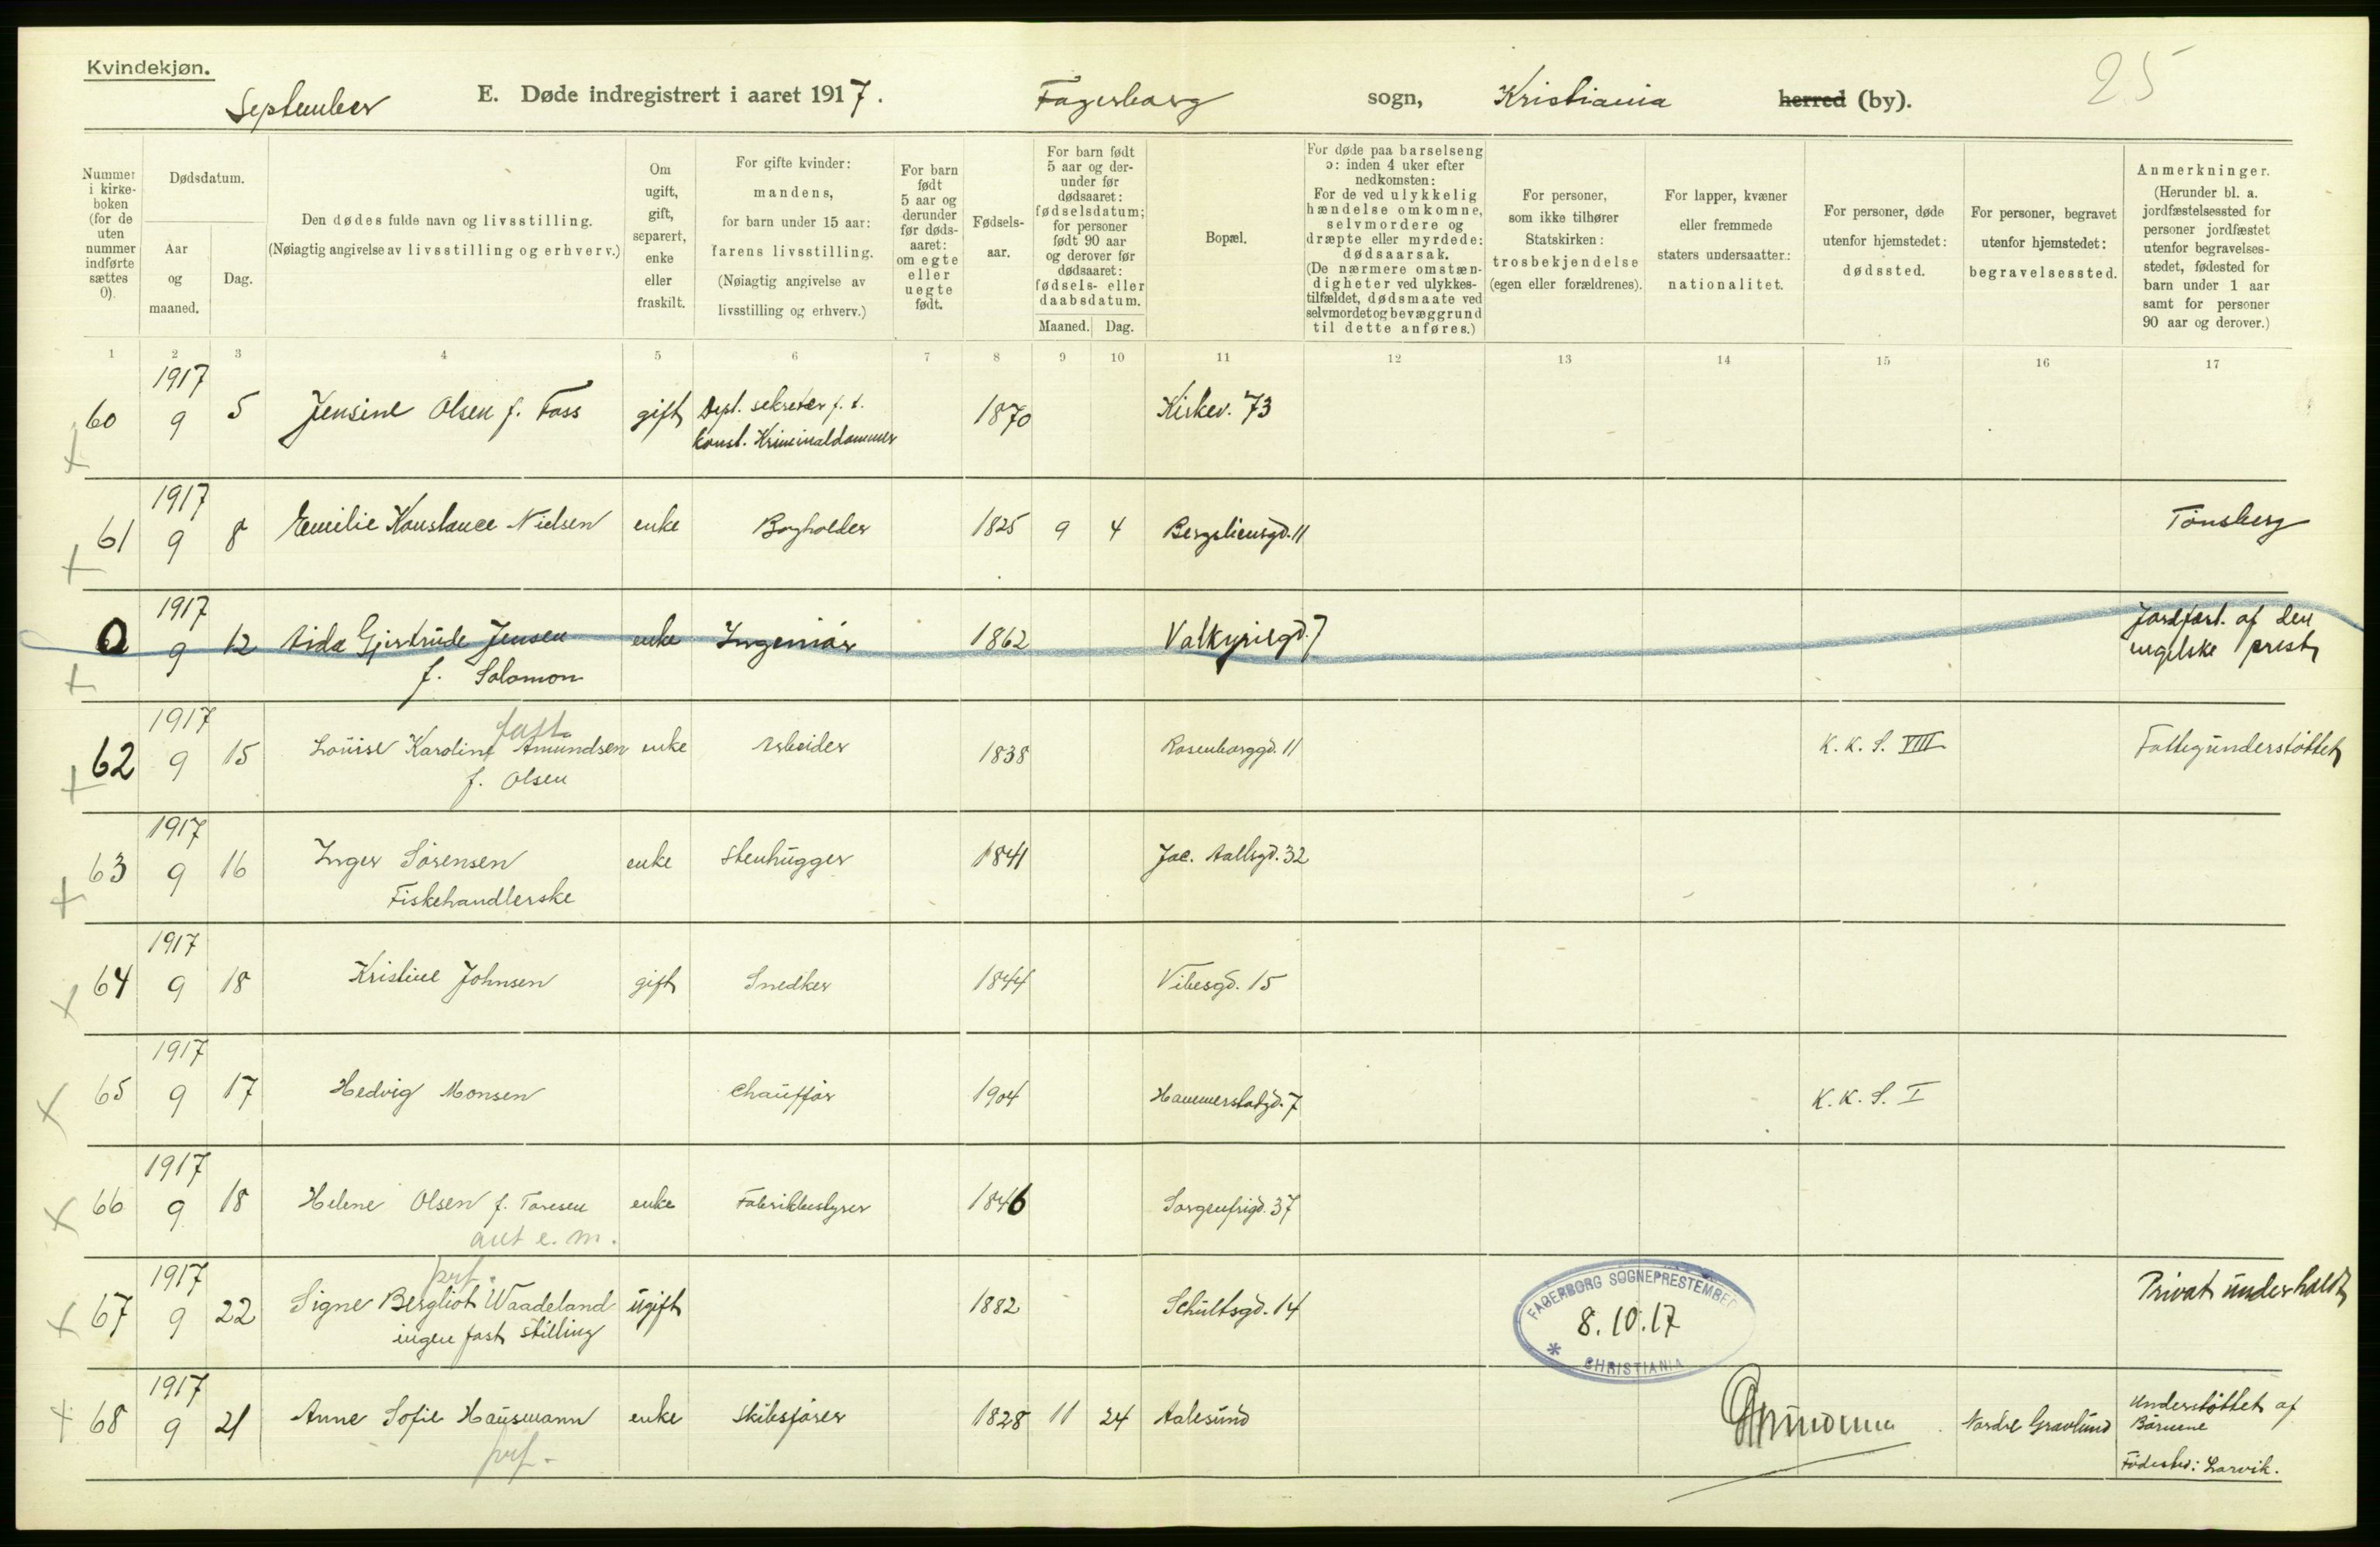 Kvindekjøn.
25
September E. Døde indregistrert i aaret 1917. Fagerborg sogn, Kristiania herred (by).
Nummer i kirke-boken (for de uten nummer indførte sættes 0).
Dødsdatum.
Aar og maaned.
Dag.
Den dødes fulde navn og livsstilling.
(Nøiagtig angivelse av livsstilling og erhverv.)
Om ugift, gift, separert, enke eller fraskilt.
For gifte kvinder: mandens, for barn under 15 aar: farens livsstilling. (Nøiagtig angivelse av livsstilling og erhverv.)
For barn født 5 aar og derunder før døds-aaret: om egte eller uegte født.
Fødsels-aar.
For barn født 5 aar og der-under før dødsaaret: fødselsdatum; for personer født 90 aar og derover før dødsaaret: fødsels- eller daabsdatum.
Maaned. Dag.
Bopæl.
For døde paa barselseng ɔ: inden 4 uker efter nedkomsten: For de ved ulykkelig hændelse omkomne, selvmordere og dræpte eller myrdede: dødsaarsak. (De nærmere omstæn-digheter ved ulykkes-tilfældet, dødsmaate ved selvmordet og bevæggrund til dette anføres.)
For personer, som ikke tilhører Statskirken: trosbekjendelse (egen eller forældrenes).
For lapper, kvæner eller fremmede staters undersaatter: nationalitet.
For personer, døde utenfor hjemstedet: dødssted.
For personer, begravet utenfor hjemstedet: begravelsessted.
Anmerkninger. (Herunder bl. a. jordfæstelsessted for personer jordfæstet utenfor begravelses-stedet, fødested for barn under 1 aar samt for personer 90 aar og derover.)
1 2 3 4 5 6 7 8 9 10 11 12 13 14 15 16 17
1917
60 9 5 Jensine Olsen f. Foss gift Dept. sekretær f. t. 1870 Kirkev. 73
konst. Kriminaldommer
1917
61 9 8 Emilie Konstance Nielsen enke Bogholder 1825 9 4 Bergsliensgd. 11 Tönsberg
1917
0 9 12 Aida Gjertrude Jensen enke Ingeniör 1862 Valkyriegd. 7 Jordfæst. af den
f. Solomon engelske prest
1917
62 9 15 Louise Karoline Amundsen enke Arbeider 1838 Rosenborggd. 11 K. K. S. VIII Fattigunderstöttet
f. Olsen
1917
63 9 16 Inger Sörensen enke Stenhugger 1841 Jac. Aallsgd. 32
Fiskehandlerske
1917
64 9 18 Kristine Johnsen gift Snedker 1844 Vibesgd. 15
1917
65 9 17 Hedvig Monsen Chaufför 1904 Hammerstadgd. 7 K. K. S. I
1917
66 9 18 Helene Olsen f. Toresen enke Fabrikbestyrer 1846 Sorgenfrigd. 37
1917
67 9 22 Signe Bergliot Waadeland ugift 1882 Schultsgd. 14 Privat underholdt
ingen fast stilling
FAGERBORG SOGNEPRESTEMBED
8.10.17
CHRISTIANIA
1917
68 9 21 Anne Sofie Hausmann enke Skibsförer 1828 11 24 Aalesund Nordre Gravlund Understöttet af
Börnene
Födested: Larvik.